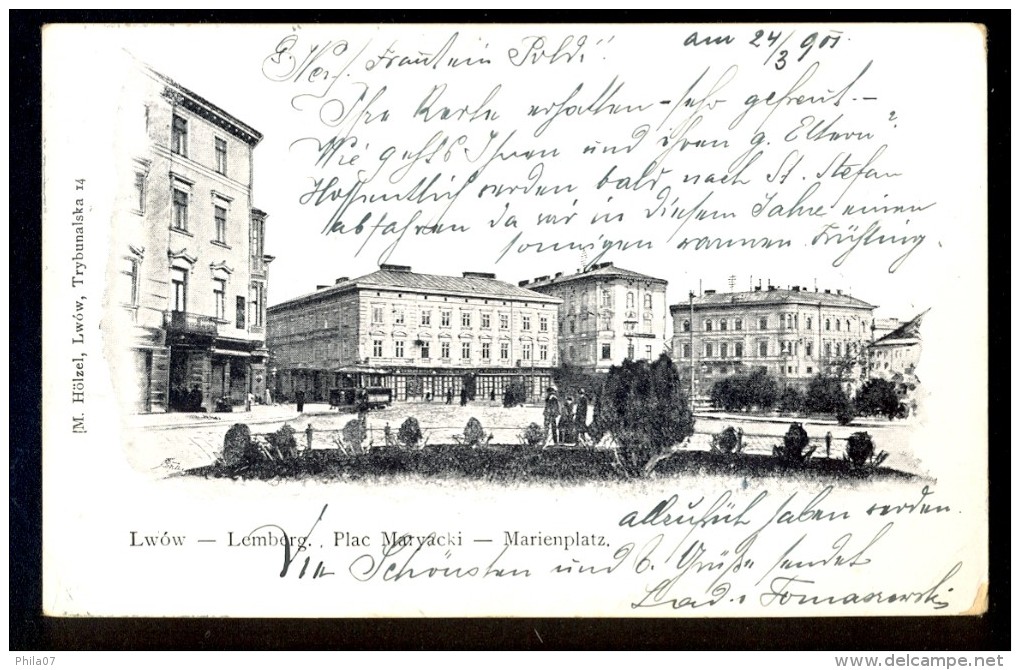 am 24/3 901.
Fräulein Poldi!
Ihre Karte erhalten – sehr gefreut. –
Wie geht's Ihnen und ihren g. Eltern?
Hoffentlich werden bald nach St. Stefan
abfahren da wir in diesem Jahre einen
sonnigen warmen Frühling
allzufrüh haben werden.
Schönsten und b. Grüße sendet
Lad. Tomaszewski
Lwów — Lemberg. Plac Maryacki — Marienplatz.
M. Hölzel, Lwów, Trybunalska 14
Phila07
delcampe.net